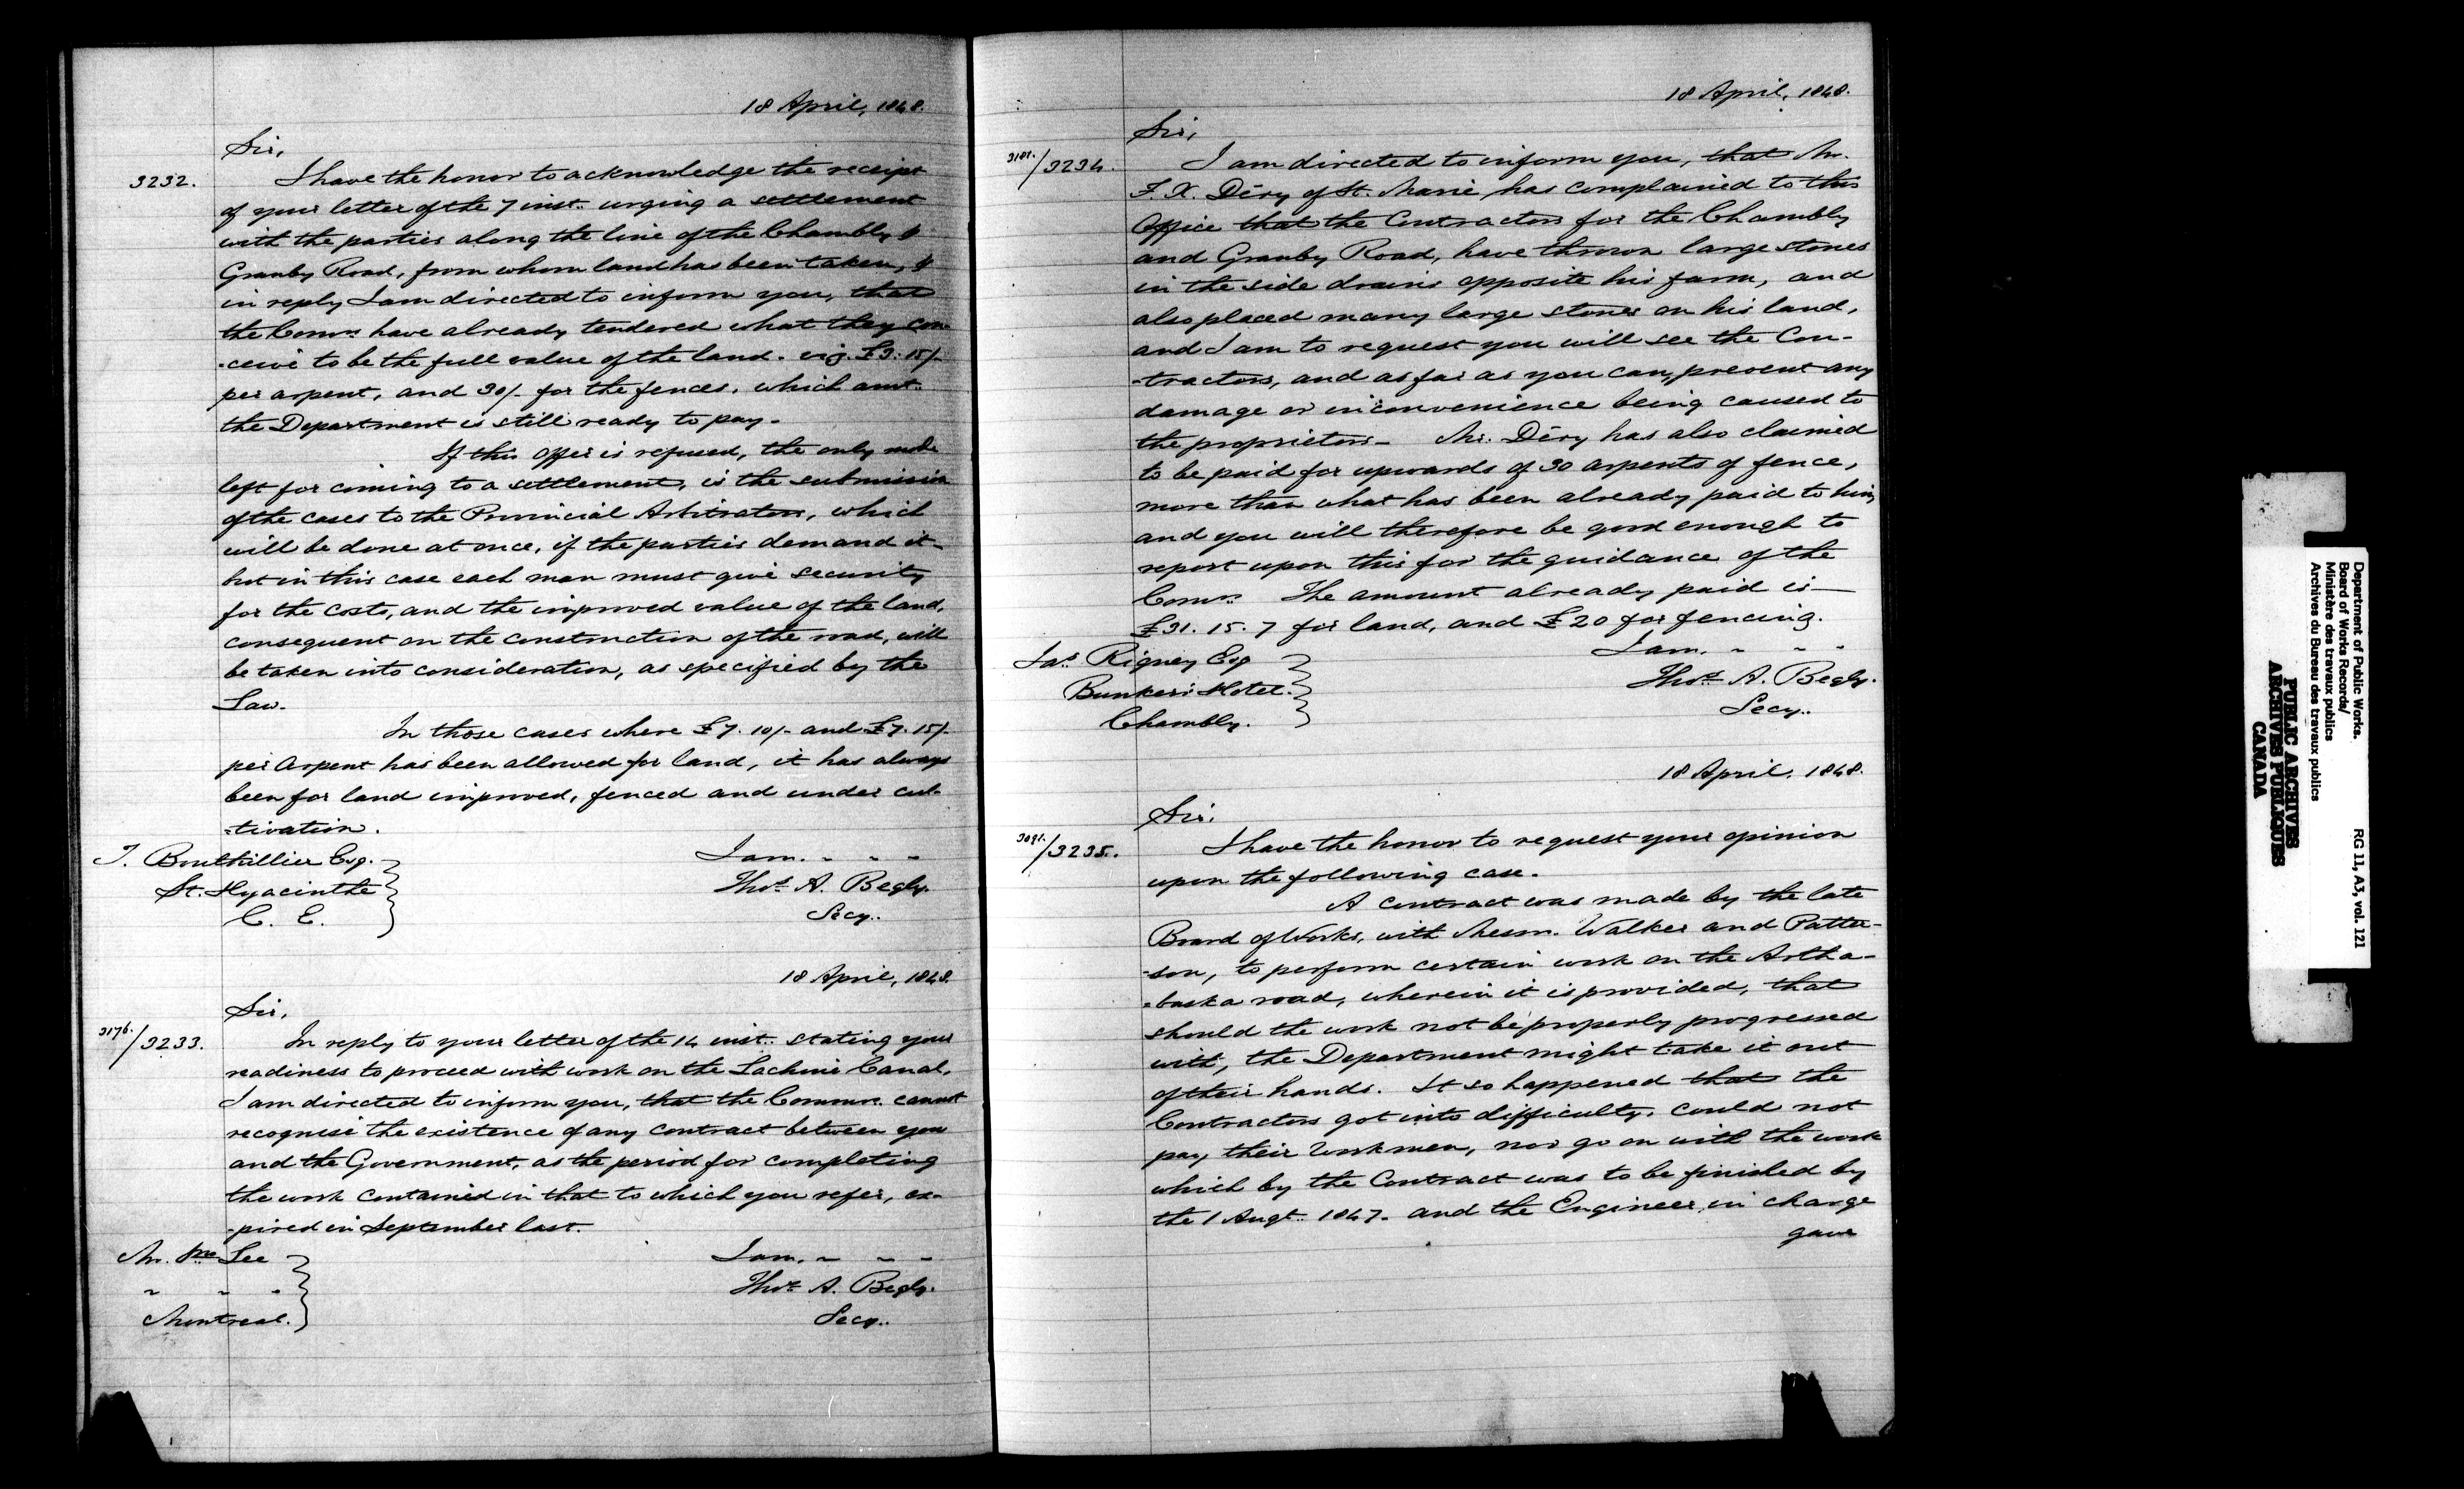 18 April, 1848.
Sir,
3232.
I have the honor to acknowledge the receipt
of your letter of the 7 inst. urging a settlement
with the parties along the line of the Chambly &
Granby Road, from whom land has been taken, &
in reply I am directed to inform you, that
the Comrs. have already tendered what they con-
-ceive to be the full value of the land. viz. £3. 15/-
per arpent, and 30/- for the fences, which amt.
the Department is still ready to pay.
If this offer is refused, the only mode
left for coming to a settlement, is the submission
of the cases to the Provincial Arbitrators, which
will be done at once, if the parties demand it-
but in this case each man must give security
for the costs, and the improved value of the land,
consequent on the construction of the road, will
be taken into consideration, as specified by the
Law.
In those cases where £7. 10/- and £7. 15/-
per Arpent has been allowed for land, it has always
been for land improved, fenced and under cul-
-tivation.
T. Bouthillier Esq.
St. Hyacinthe
C. E.
I am. - - -
Thos. A. Begly.
Secy.
18 April, 1848.
Sir,
3176./3233.
In reply to your letter of the 14 inst. stating your
readiness to proceed with work on the Lachine Canal,
I am directed to inform you, that the Commrs. cannot
recognise the existence of any contract between you
and the Government, as the period for completing
the work contained in that to which you refer, ex-
-pired in September last.
Mr. Lee
" " "
Montreal.
I am. - - -
Thos. A. Begly.
Secy.
18 April, 1848.
Sir,
3181./3234.
I am directed to inform you, that Mr.
F. X. Déry of St. Marie has complained to this
Office that the Contractors for the Chambly
and Granby Road, have thrown large stones
in the side drains opposite his farm, and
also placed many large stones on his land,
and I am to request you will see the Con-
-tractors, and as far as you can, prevent any
damage or inconvenience being caused to
the proprietors - Mr. Déry has also claimed
to be paid for upwards of 30 arpents of fence,
more than what has been already paid to him,
and you will therefore be good enough to
report upon this for the guidance of the
Comrs. The amount already paid is -
£31. 15. 7 for land, and £20 for fencing.
Jas. Rigney Esq
Bunker's Hotel.
Chambly.
I am. - - -
Thos. A. Begly.
Secy.
18 April. 1848.
Sir.
3091./3235.
I have the honor to request your opinion
upon the following case.
A contract was made by the late
Board of Works, with Messrs. Walker and Patter-
-son, to perform certain work on the Artha-
-baska road, wherein it is provided, that
should the work not be properly progressed
with, the Department might take it out
of their hands. It so happened that the
Contractors got into difficulty, could not
pay their workmen, nor go on with the work
which by the Contract was to be finished by
the 1 Augt. 1847. and the Engineer in charge
gave
Department of Public Works.
Board of Works Records/
Ministère des travaux publics
Archives du Bureau des travaux publics
RG 11, A3, vol. 121
PUBLIC ARCHIVES
ARCHIVES PUBLIQUES
CANADA